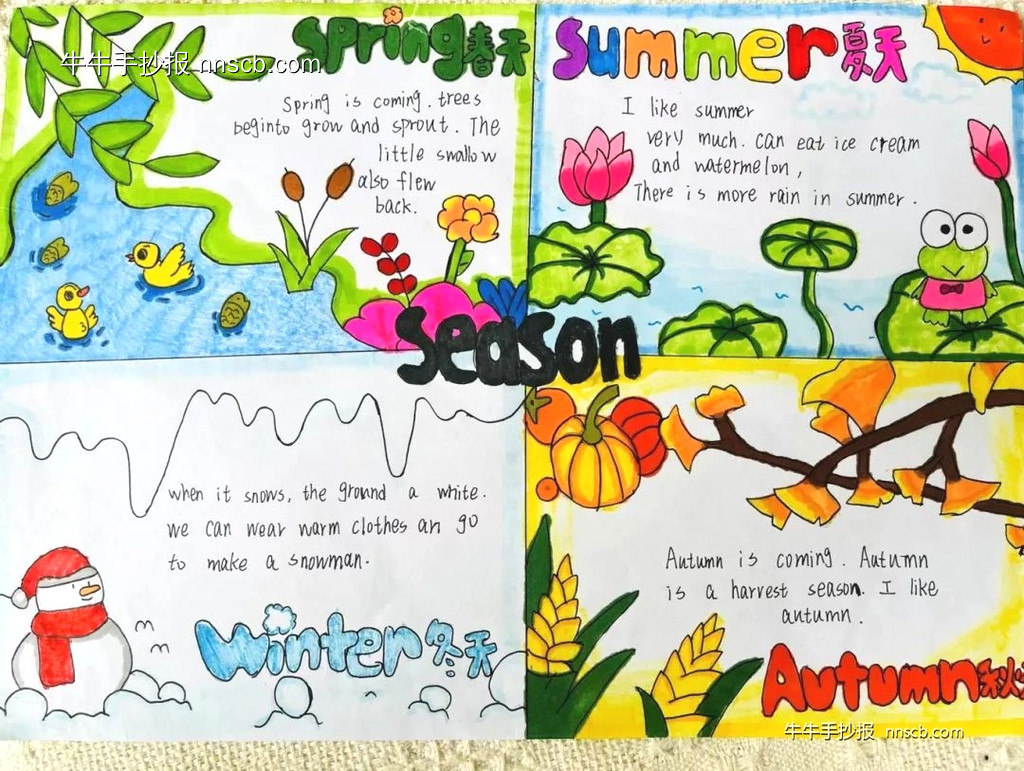 Spring 春天
牛牛手抄报 nnscb.com
Spring is coming. trees
begin to grow and sprout. The
little swallow
also flew
back.
Summer 夏天
I like summer
very much. can eat ice cream
and watermelon,
There is more rain in summer.
season
when it snows, the ground a white.
we can wear warm clothes an go
to make a snowman.
Winter 冬天
Autumn is coming. Autumn
is a harvest season. I like
autumn.
Autumn 秋
牛牛手抄报 nnscb.com